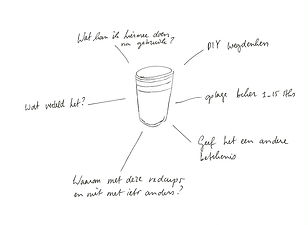 Wat kan ik hiermee doen
na gebruik?
DIY wegdenken
Wat verteld het?
oplage beker 1-15 stks
Geef het een andere
betekenis
Waarom met deze redcups
en niet met iets anders?